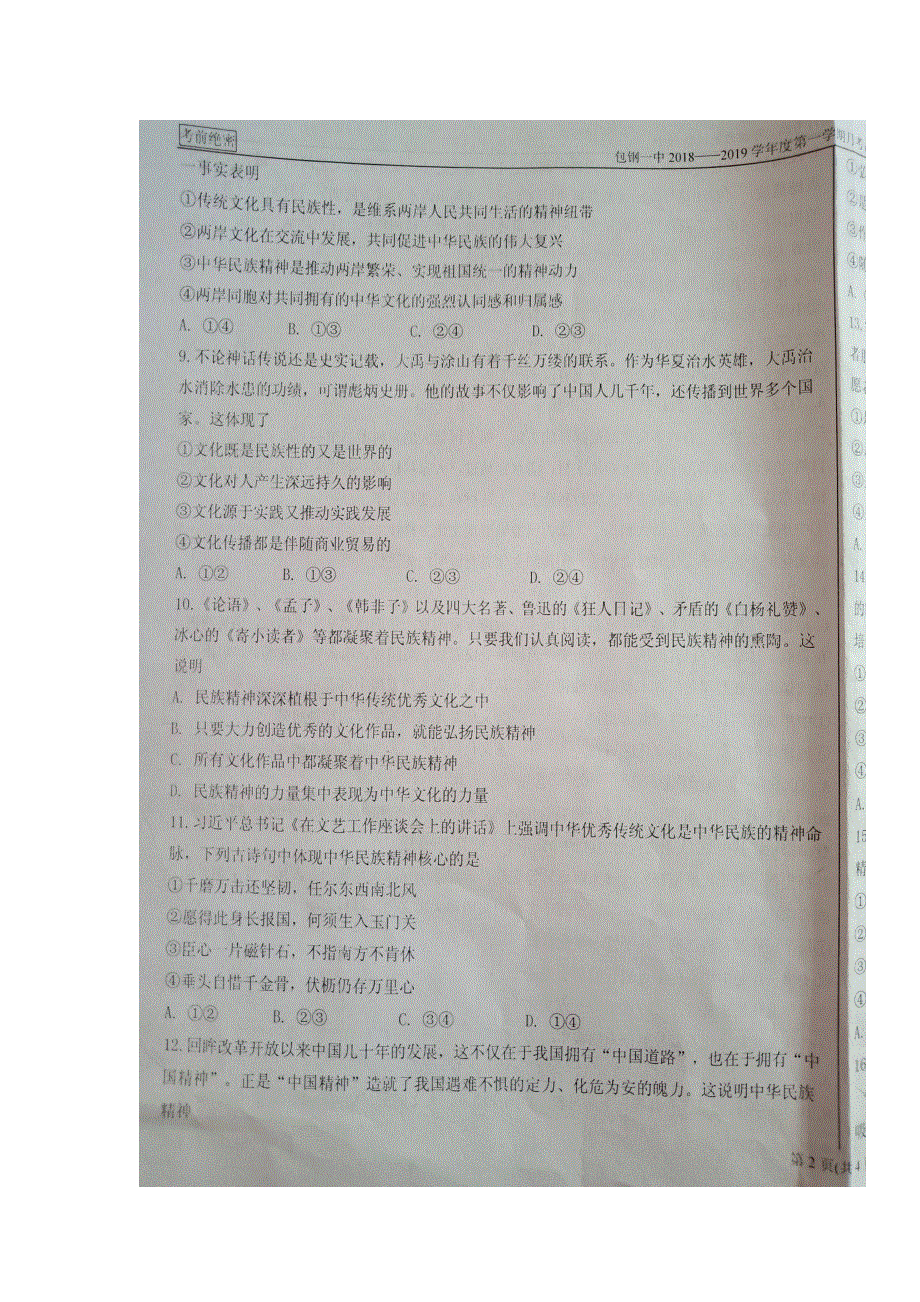 考前绝密
包钢一中 2018——2019 学年度第一学
一事实表明
①传统文化具有民族性，是维系两岸人民共同生活的精神纽带
②两岸文化在交流中发展，共同促进中华民族的伟大复兴
③中华民族精神是推动两岸繁荣、实现祖国统一的精神动力
④两岸同胞对共同拥有的中华文化的强烈认同感和归属感
A. ①④ B. ①③ C. ②④ D. ②③
9. 不论神话传说还是史实记载，大禹与涂山有着千丝万缕的联系。作为华夏治水英雄，大禹治
水消除水患的功绩，可谓彪炳史册。他的故事不仅影响了中国人几千年，还传播到世界多个国
家。这体现了
①文化既是民族性的又是世界的
②文化对人产生深远持久的影响
③文化源于实践又推动实践发展
④文化传播都是伴随商业贸易的
A. ①② B. ①③ C. ②③ D. ②④
10. 《论语》、《孟子》、《韩非子》以及四大名著、鲁迅的《狂人日记》、矛盾的《白杨礼赞》、
冰心的《寄小读者》等都凝聚着民族精神。只要我们认真阅读，都能受到民族精神的熏陶。这
说明
A. 民族精神深深植根于中华传统优秀文化之中
B. 只要大力创造优秀的文化作品，就能弘扬民族精神
C. 所有文化作品中都凝聚着中华民族精神
D. 民族精神的力量集中表现为中华文化的力量
11. 习近平总书记《在文艺工作座谈会上的讲话》上强调中华优秀传统文化是中华民族的精神命
脉，下列古诗句中体现中华民族精神核心的是
①千磨万击还坚韧，任尔东西南北风
②愿得此身长报国，何须生入玉门关
③臣心一片磁针石，不指南方不肯休
④垂头自惜千金骨，伏枥仍存万里心
A. ①② B. ②③ C. ③④ D. ①④
12. 回眸改革开放以来中国几十年的发展，这不仅在于我国拥有“中国道路”，也在于拥有“中
国精神”。正是“中国精神”造就了我国遇难不惧的定力、化危为安的魄力。这说明中华民族
精神
第 2 页(共 4
①
②是
③
④
A.
13.
者
愿
①
②
③
④
A.
14
的
培
①
②
③
④
A.
15
精
①
②
③
④
A.
16